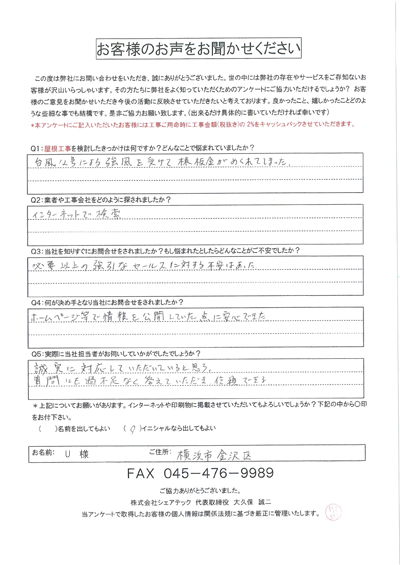 お客様のお声をお聞かせください
この度は弊社にお問い合わせをいただき、誠にありがとうございました。世の中には弊社の存在やサービスをご存知ないお
客様が沢山いらっしゃいます。その方たちに弊社をよく知っていただくためのアンケートにご協力いただけるでしょうか? お客
様のご意見をお聞かせいただき今後の活動に反映させていただきたいと考えております。良かったこと、嬉しかったことどのよ
うな些細な事でも結構です。是非ご協力お願い致します。(出来るだけ具体的に書いていただければ幸いです)
*本アンケートにご記入いただいたお客様には工事ご用命時に工事金額(税抜き)の 2%をキャッシュバックさせていただきます。
Q1:屋根工事を検討したきっかけは何ですか?どんなことで悩まれていましたか?
台風12号による強風を受けて棟板金がめくれてしまった。
Q2:業者や工事会社をどのように探されましたか?
インターネットで検索
Q3:当社を知りすぐにお問合せをされましたか?もし悩まれたとしたらどんなことがご不安でしたか?
必要以上の強引なセールスに対する不安はあった
Q4:何が決め手となり当社にお問合せをされましたか?
ホームページ等で情報を公開していた点に安心できた
Q5:実際に当社担当者がお伺いしていかがでしたでしょうか?
誠実に対応していただいていると思う。
質問にも過不足なく答えていただき信頼できる
*上記についてお願いがあります。インターネットや印刷物に掲載させていただいてもよろしいでしょうか?下記の中から○印
をお付下さい。
( )名前を出してもよい (○)イニシャルなら出してもよい
お名前: U 様 ご住所: 横浜市金沢区
FAX 045-476-9989
ご協力ありがとうございました。
株式会社シェアテック 代表取締役 大久保 誠二
当アンケートで取得したお客様の個人情報は関係法規に基づき厳正に管理いたします。